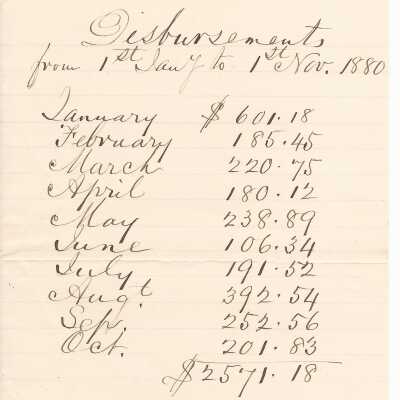 Disbursements
from 1st Jany to 1st Nov. 1880
January $ 601.18
February 185.45
March 220.75
April 180.12
May 238.89
June 106.34
July 191.52
Augt. 392.54
Sep. 252.56
Oct. 201.83
$2571.18